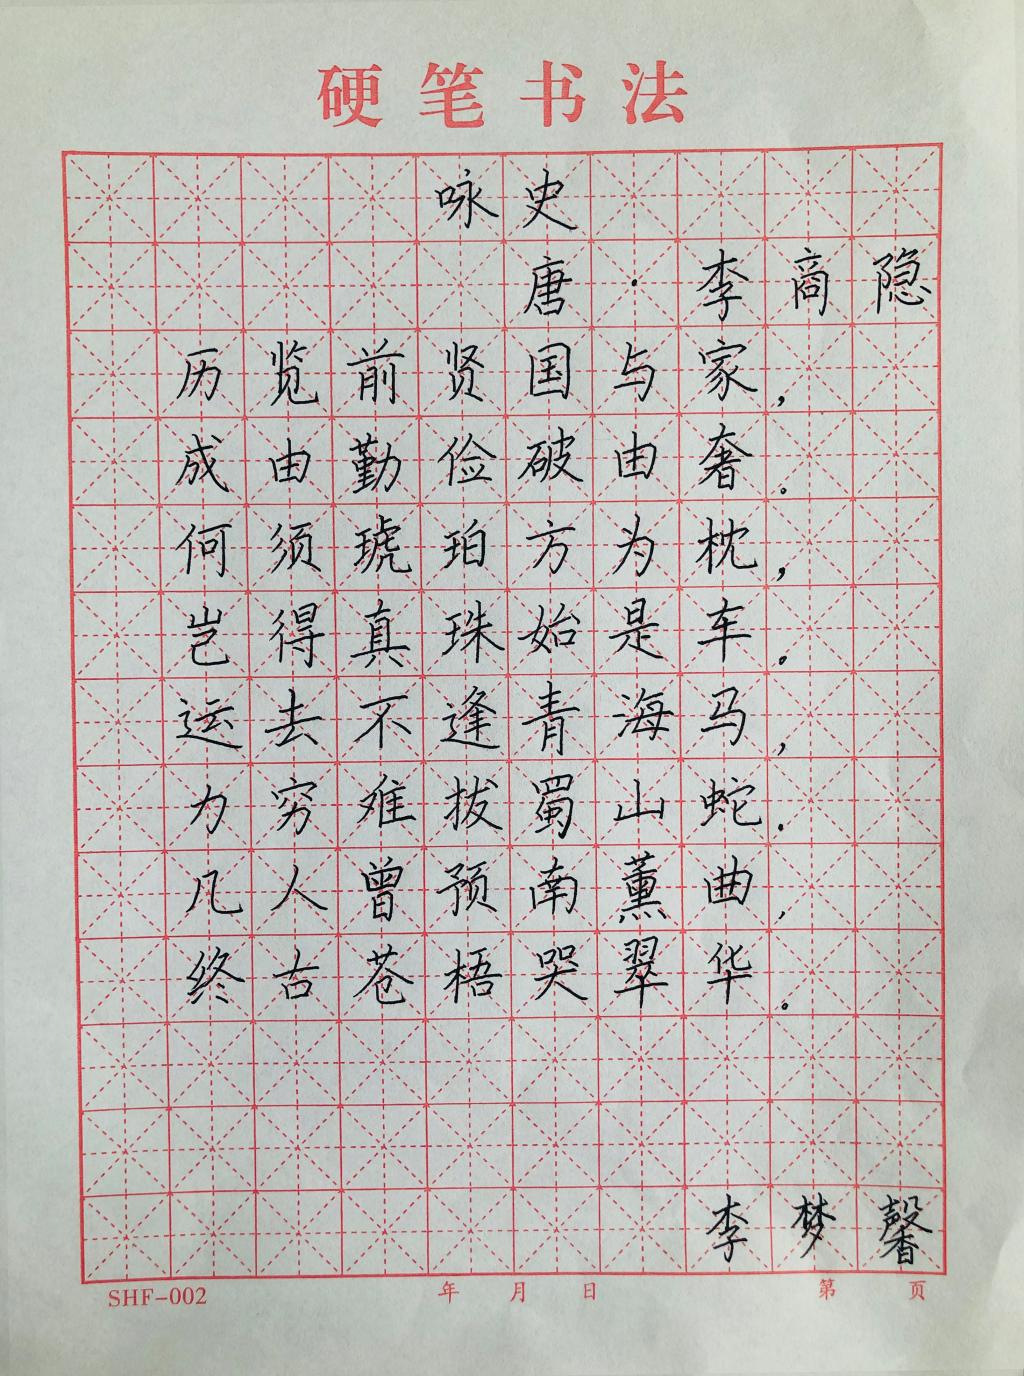 硬笔书法
咏史
唐·李商隐
历览前贤国与家，
成由勤俭破由奢。
何须琥珀方为枕，
岂得真珠始是车。
运去不逢青海马，
力穷难拔蜀山蛇.
几人曾预南薰曲，
终古苍梧哭翠华。
李梦馨
SHF-002 年 月 日 第 页